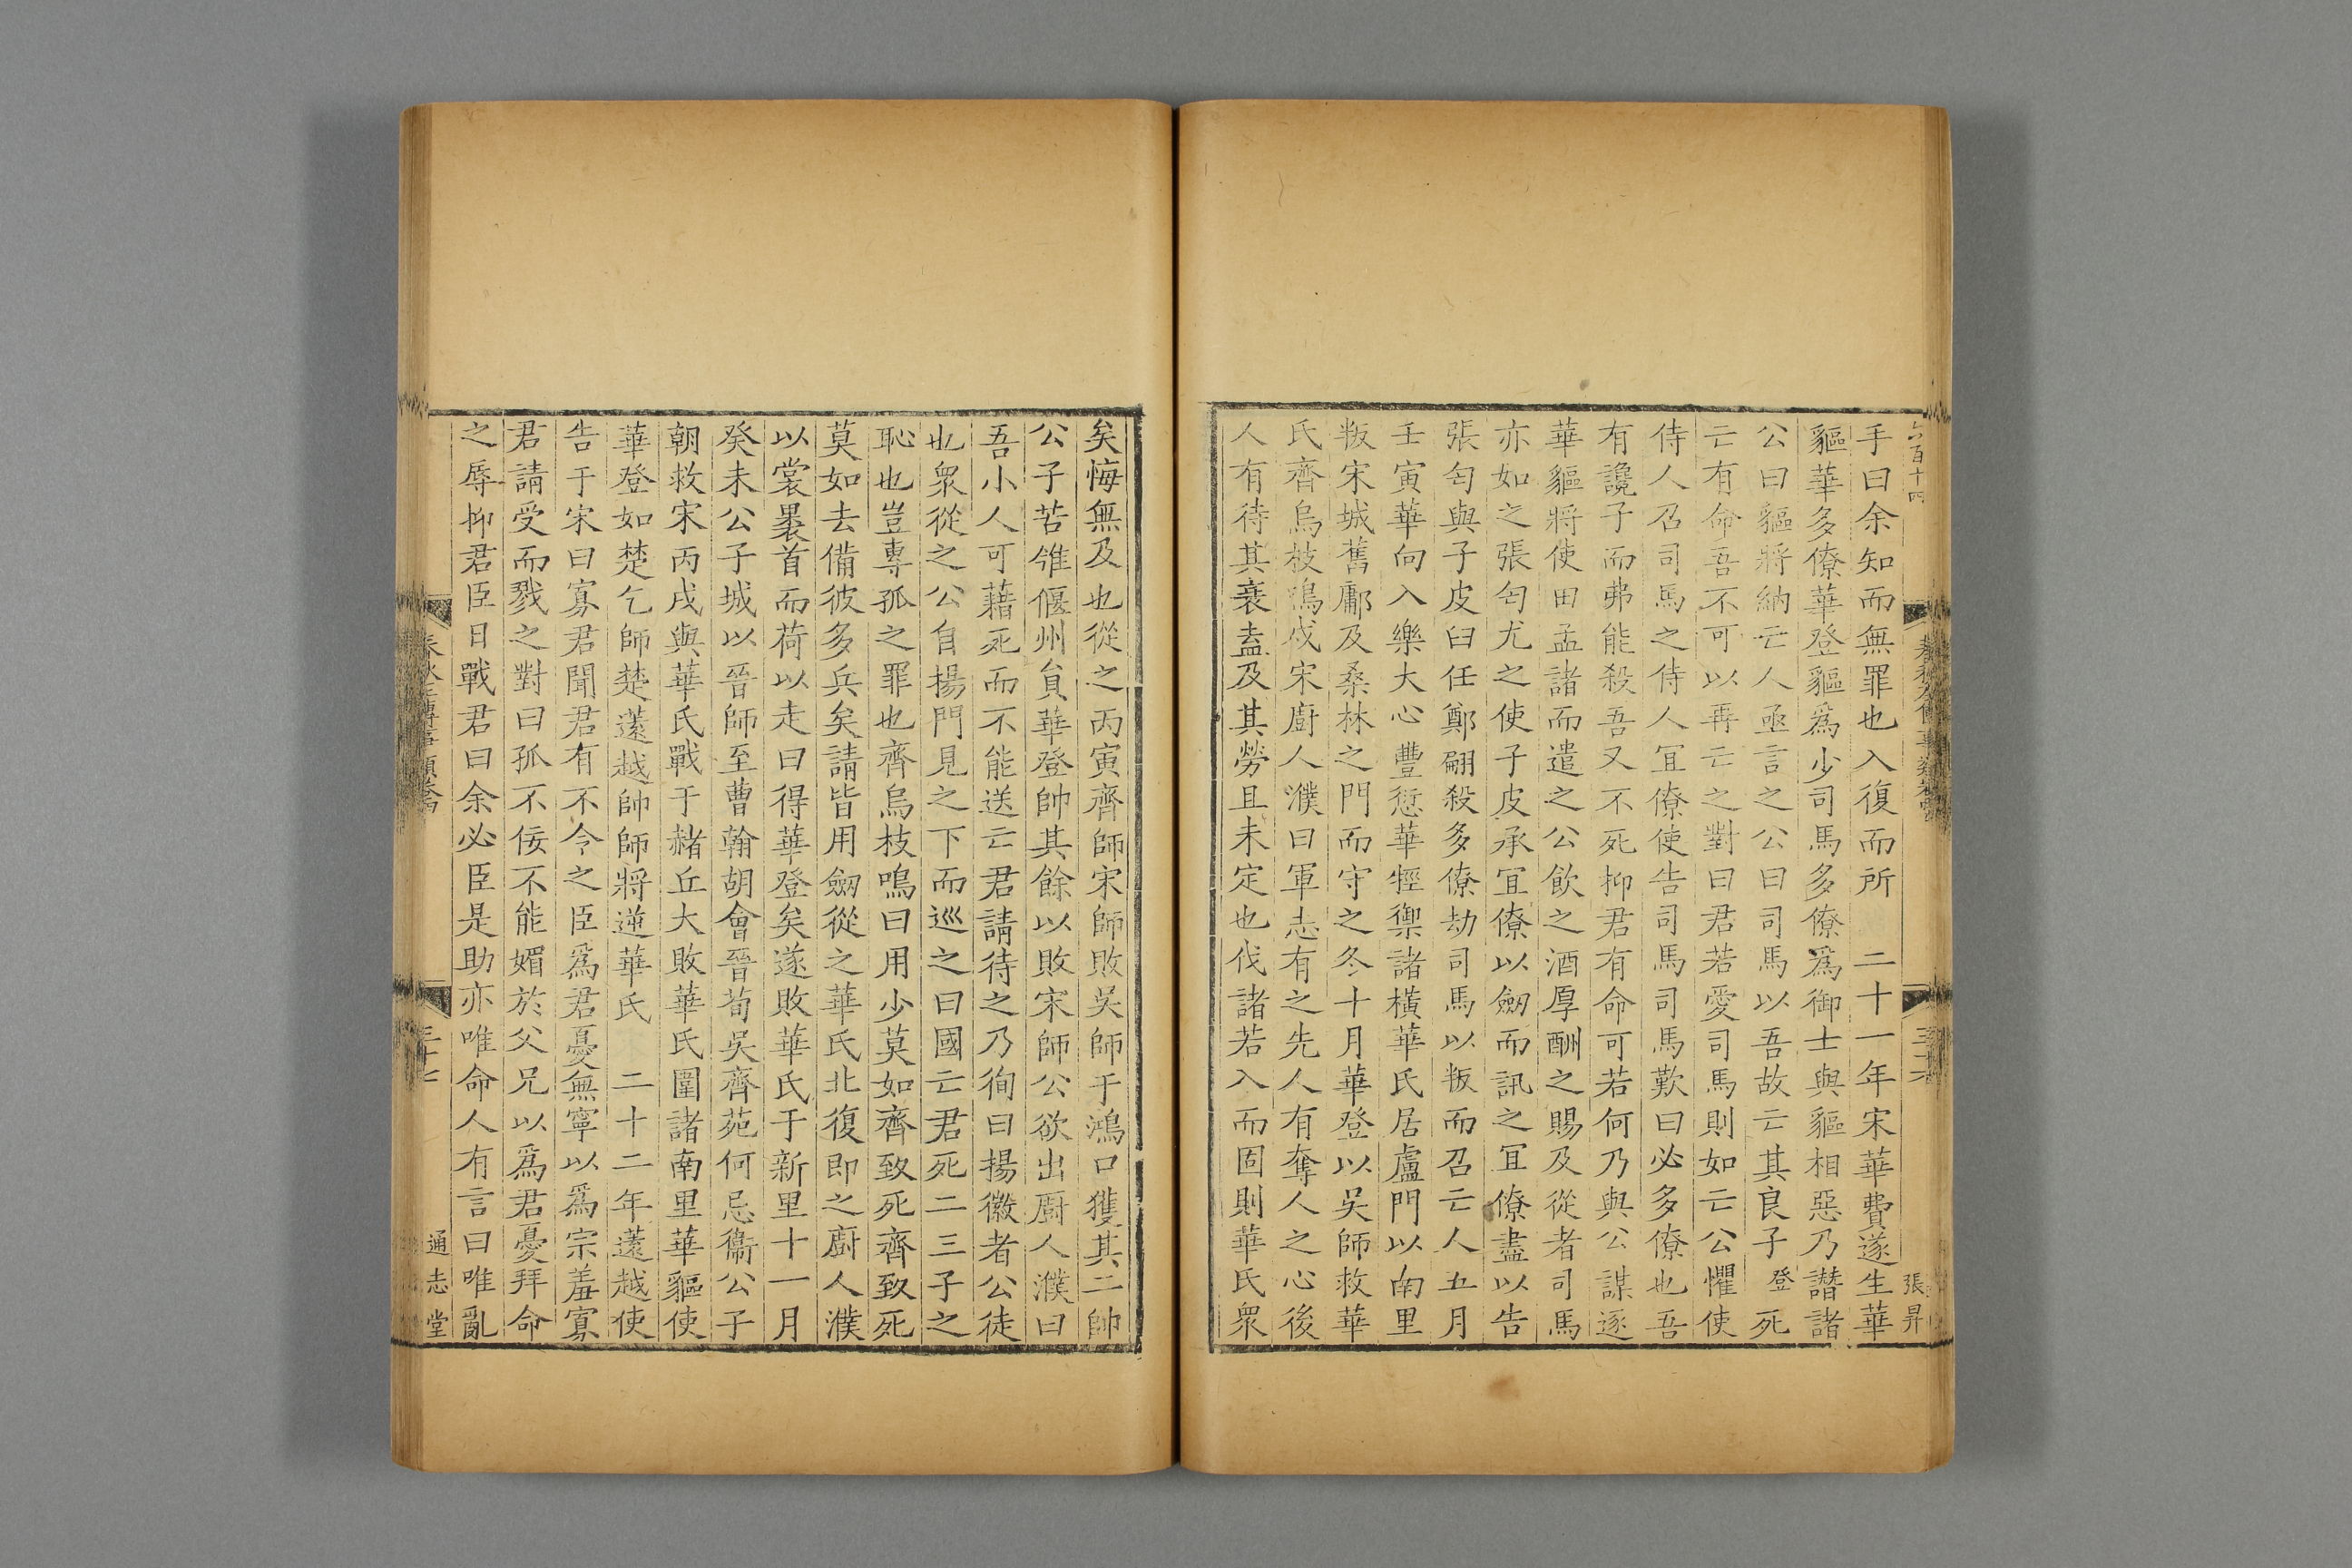 六百十四
張昇
手曰余知而無罪也入復而所　二十一年宋華費遂生華
貙華多僚華登貙爲少司馬多僚爲御士與貙相惡乃譖諸
公曰貙將納亡人亟言之公曰司馬以吾故亡其良子登死
亡有命吾不可以再亡之對曰君若愛司馬則如亡公懼使
侍人召司馬之侍人冝僚使告司馬司馬歎曰必多僚也吾
有讒子而弗能殺吾又不死抑君有命可若何乃與公謀逐
華貙將使田孟諸而遣之公飲之酒厚酬之賜及從者司馬
亦如之張匄尤之使子皮承冝僚以劒而訊之冝僚盡以告
張匄與子皮臼任鄭翩殺多僚劫司馬以叛而召亡人五月
壬寅華向入樂大心豐愆華牼禦諸橫華氏居盧門以南里
叛宋城舊鄘及桑林之門而守之冬十月華登以吳師救華
氏齊烏枝鳴戍宋廚人濮曰軍志有之先人有奪人之心後
人有待其衰盍及其勞且未定也伐諸若入而固則華氏衆
矣悔無及也從之丙寅齊師宋師敗吳師于鴻口獲其二帥
公子苦雂偃州貟華登帥其餘以敗宋師公欲出廚人濮曰
吾小人可藉死而不能送亡君請待之乃徇曰揚徽者公徒
也衆從之公自揚門見之下而巡之曰國亡君死二三子之
恥也豈專孤之罪也齊烏枝鳴曰用少莫如齊致死齊致死
莫如去備彼多兵矣請皆用劒從之華氏北復即之廚人濮
以裳褁首而荷以走曰得華登矣遂敗華氏于新里十一月
癸未公子城以晉師至曹翰胡會晉荀吳齊苑何忌衞公子
朝救宋丙戌與華氏戰于赭丘大敗華氏圍諸南里華貙使
華登如楚乞師楚薳越帥師將逆華氏　二十二年薳越使
告于宋曰寡君聞君有不令之臣爲君憂無寧以爲宗羞寡
君請受而戮之對曰孤不佞不能媚於父兄以爲君憂拜命
之辱抑君臣日戰君曰余必臣是助亦唯命人有言曰唯亂
通志堂